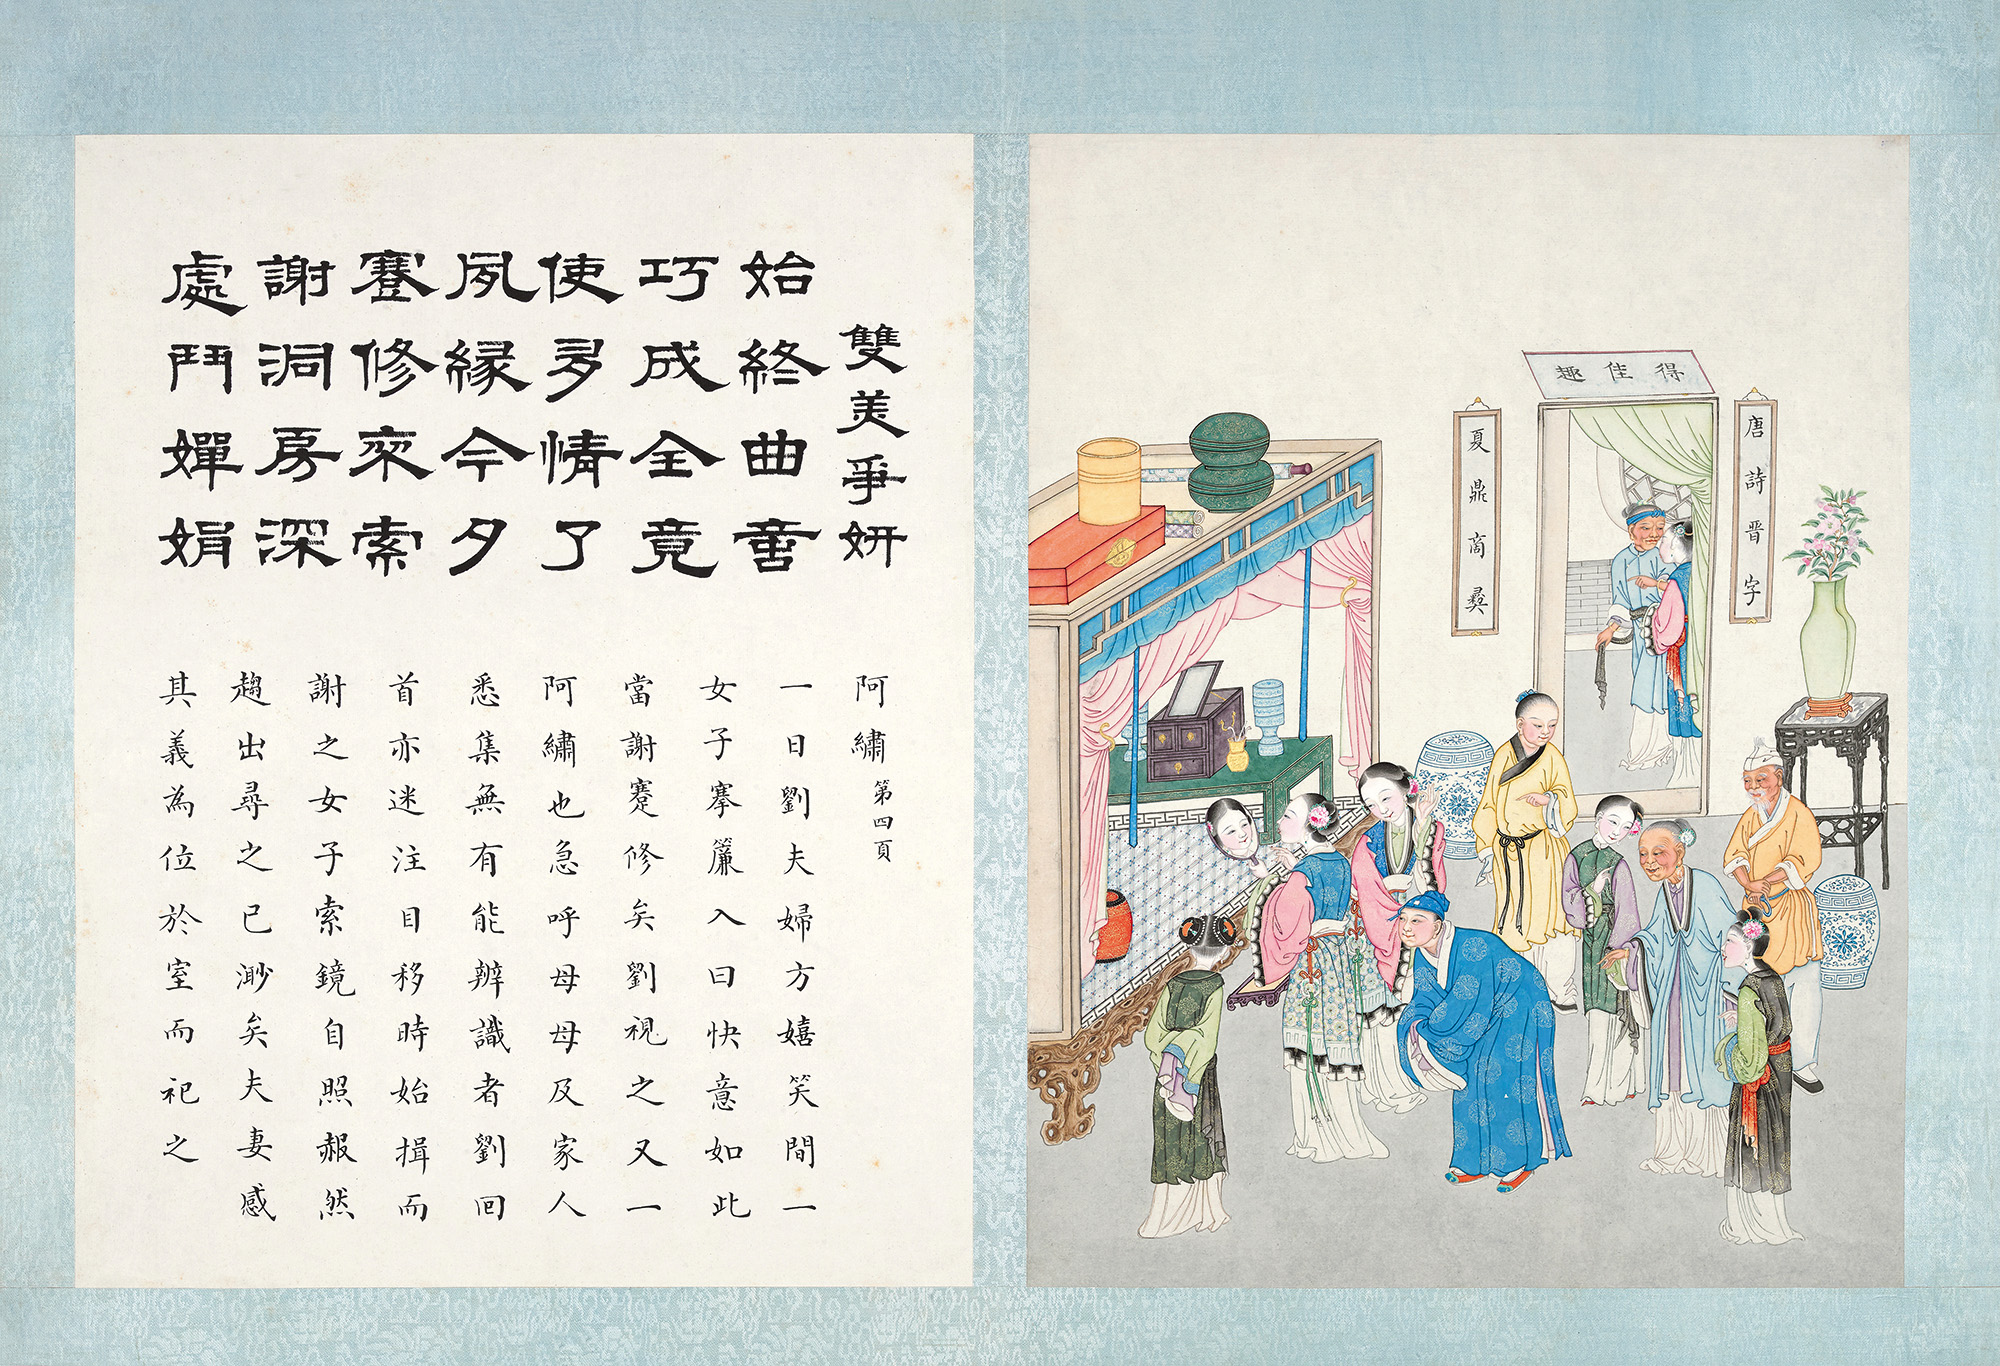 雙美爭妍
始終曲啚
巧成全竟
使多情了
夙緣今夕
蹇修來索
謝洞房深
處鬥嬋娟
阿繡 第四頁
一日劉夫婦方嬉笑間一
女子搴簾入曰快意如此
當謝蹇修矣劉視之又一
阿繡也急呼母母及家人
悉集無有能辨識者劉回
首亦迷注目移時始揖而
謝之女子索鏡自照赧然
趨出尋之已渺矣夫妻感
其義為位於室而祀之
得佳趣
唐詩晋字
夏鼎商彝